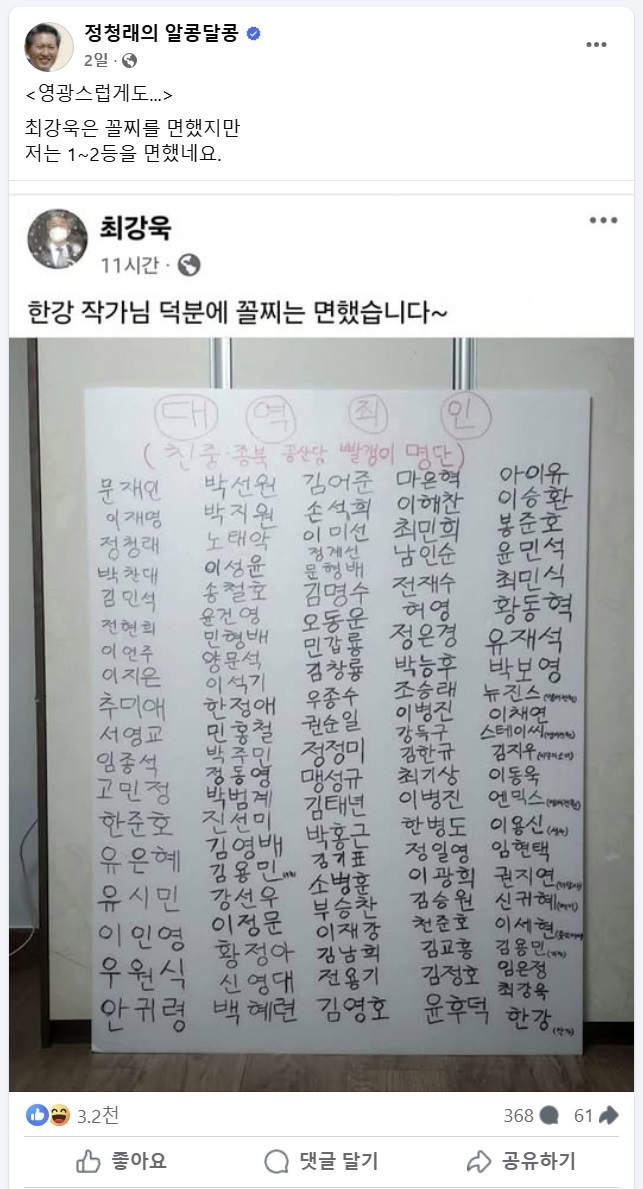 정청래의 알콩달콩
2일
<영광스럽게도...>
최강욱은 꼴찌를 면했지만
저는 1~2등을 면했네요.
최강욱
11시간
한강 작가님 덕분에 꼴찌는 면했습니다~
대 역 죄 인
(친중·종북 공산당 빨갱이 명단)
문재인
이재명
정청래
박찬대
김민석
전현희
이언주
이지은
추미애
서영교
임종석
고민정
한준호
유은혜
유시민
이인영
우원식
안귀령
박선원
박지원
노태악
이성윤
송철호
윤건영
민형배
양문석
이석기
한정애
민홍철
박주민
정동영
박범계
진선미
김영배
김용민
강선우
이정문
황정아
신영대
백혜련
김어준
손석희
이미선
정계선
문형배
김명수
오동운
민갑룡
김창룡
우종수
권순일
정정미
맹성규
김태년
박홍근
김기표
소병훈
부승찬
이재강
김남희
전용기
김영호
마은혁
이해찬
최민희
남인순
전재수
허영
정은경
박능후
조승래
이병진
강득구
김한규
최기상
이병진
한병도
정일영
이광희
김승원
천준호
김교흥
김정호
윤후덕
아이유
이승환
봉준호
윤민석
최민식
황동혁
유재석
박보영
뉴진스
이채연
스테이씨
김지우
이동욱
엔믹스
이용신
임현택
권지연
신귀혜
이세현
김용민
임은정
최강욱
한강 (작가)
3.2천
368 61
좋아요 댓글 달기 공유하기